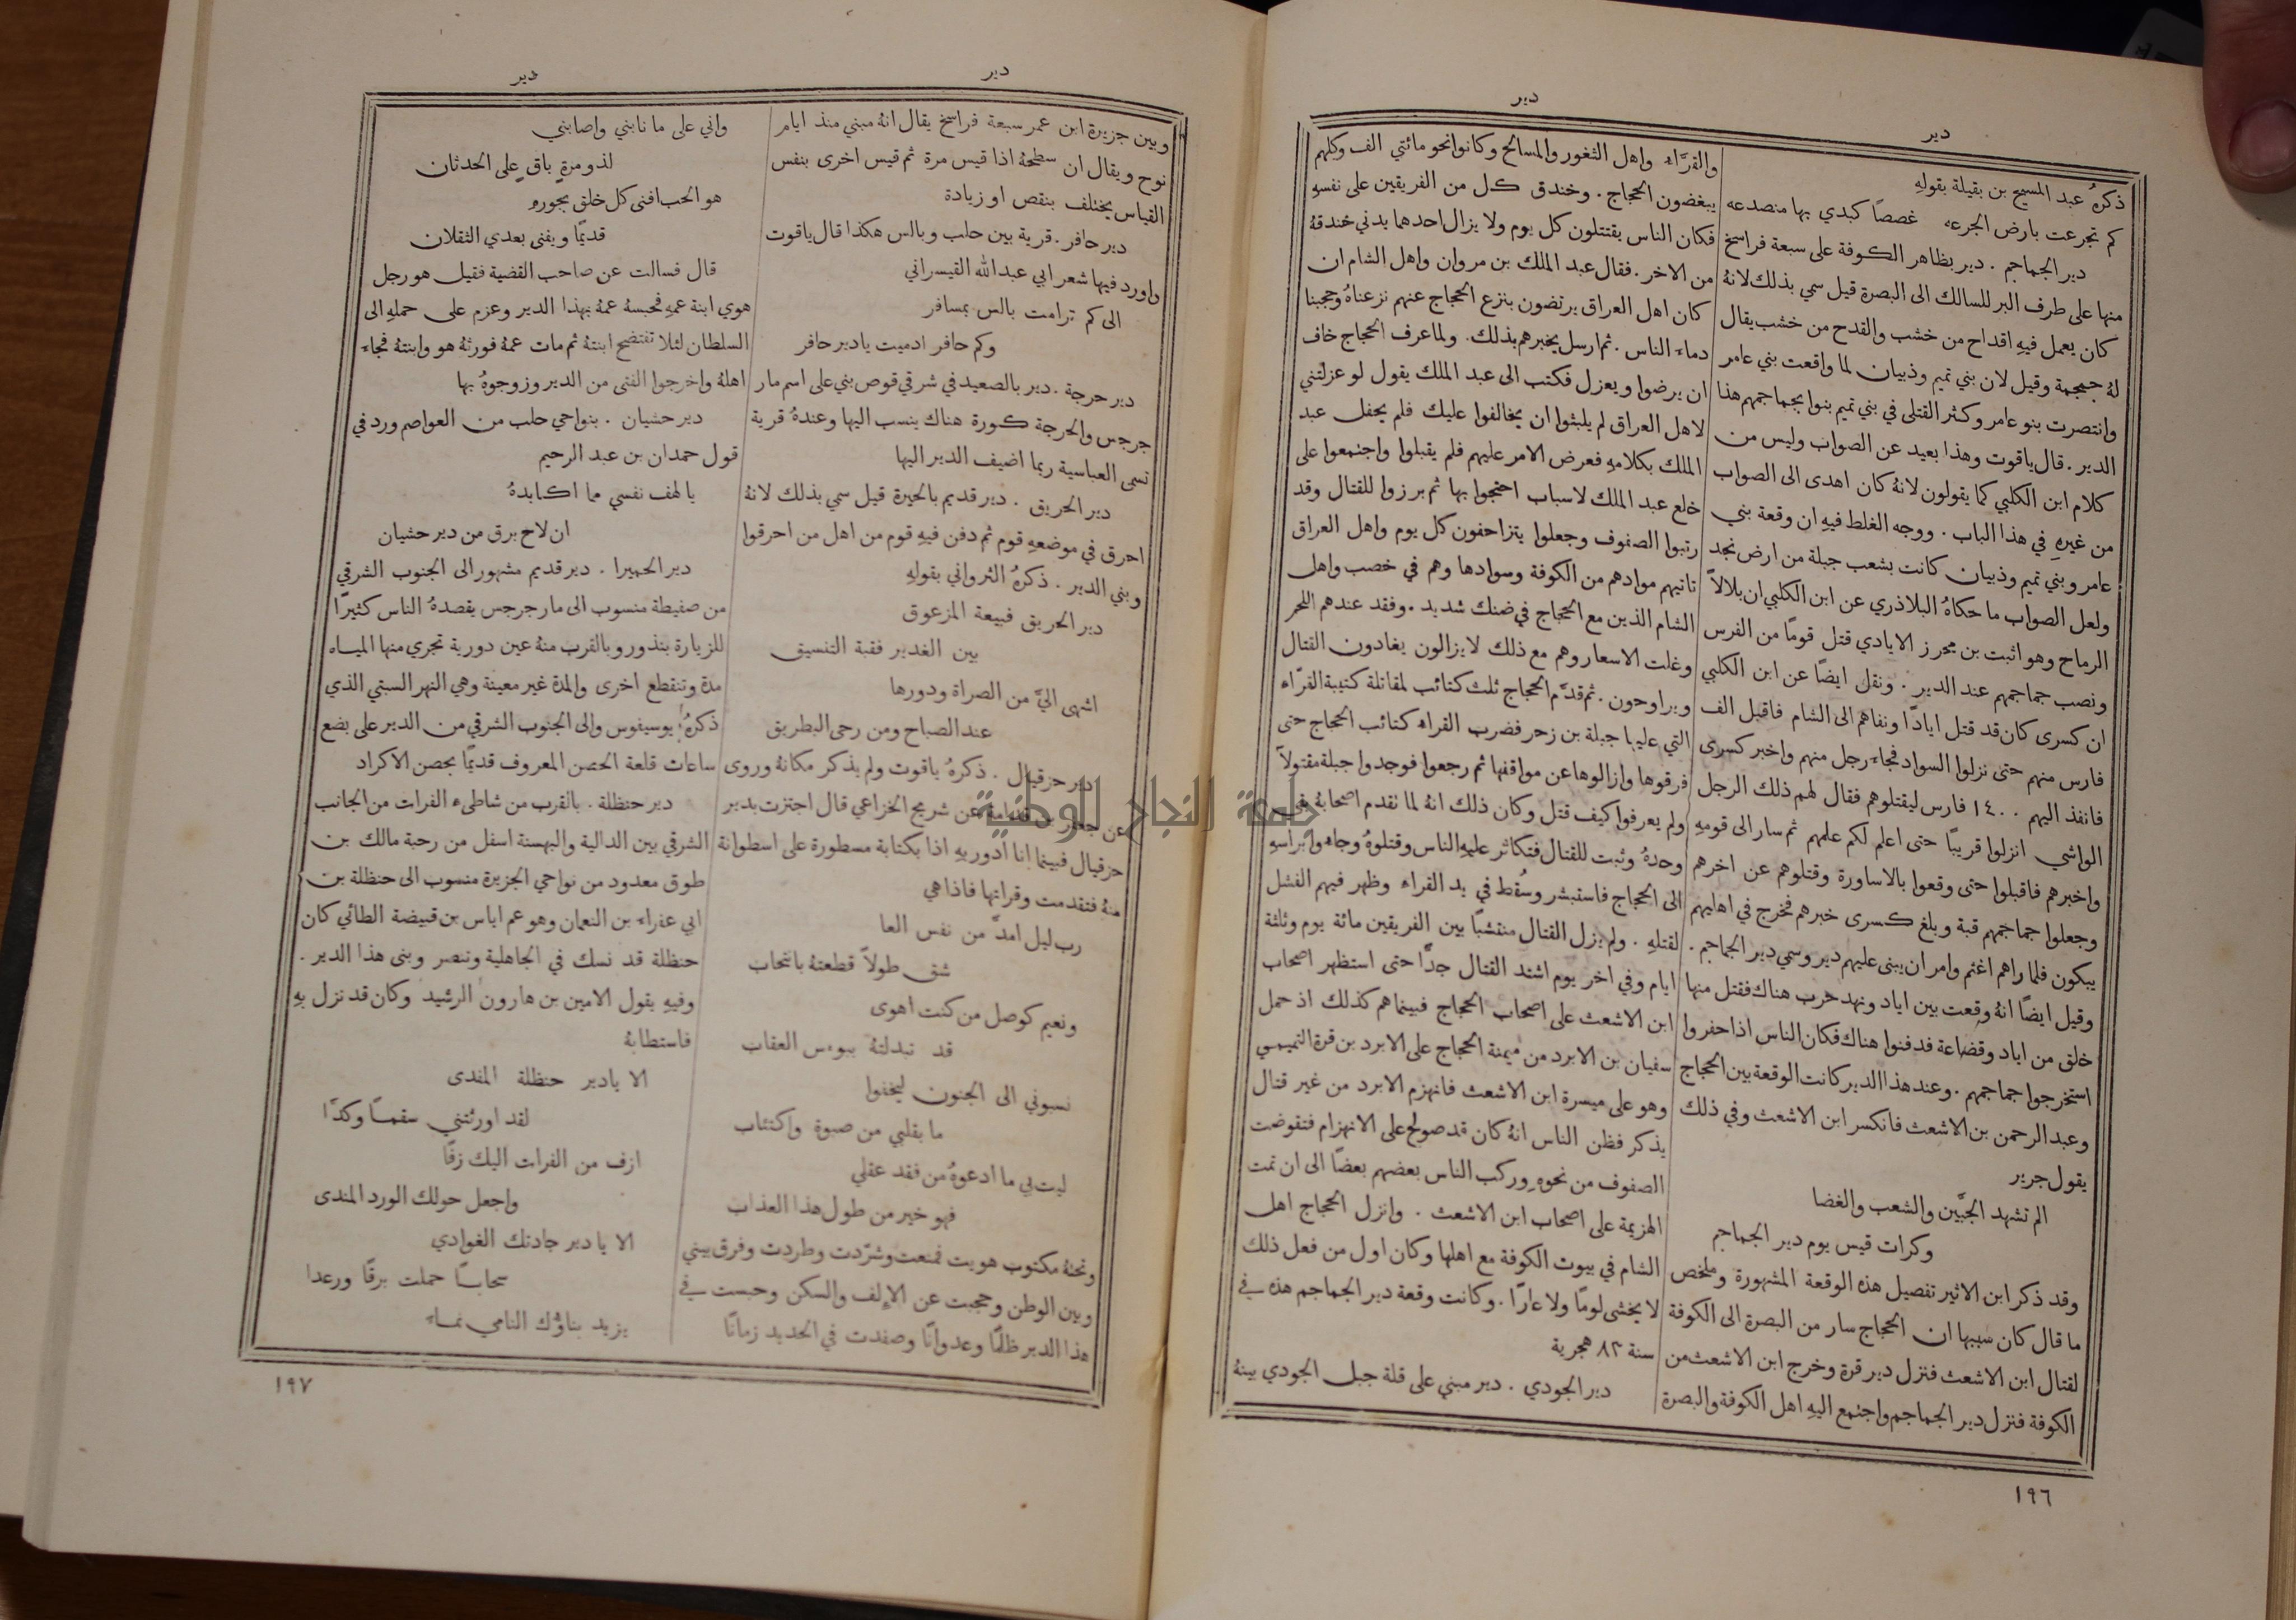 دير
دير
ذكرهُ عبد المسيح بن بقيلة بقولهِ
كم تجرعت بارض الجرعه غصصًا كبدي بها منصدعه
دير الجماجم . دير بظاهر الكوفة على سبعة فراسخ
منها على طرف البر للسالك الى البصرة قيل سمي بذلك لانهُ
كان يعمل فيهِ اقداح من خشب والقدح من خشب يقال
لهُ جمجمة وقيل لان بني تميم وذبيان لما واقعت بني عامر
وانتصرت بنو عامر وكثر القتلى في بني تميم بنوا بجماجمهم هذا
الدير . قال ياقوت وهذا بعيد عن الصواب وليس من
كلام ابن الكلبي كما يقولون لانهُ كان اهدى الى الصواب
من غيرهِ في هذا الباب . ووجه الغلط فيهِ ان وقعة بني
عامر وبني تميم وذبيان كانت بشعب جبلة من ارض نجد
ولعل الصواب ما حكاهُ البلاذري عن ابن الكلبي ان بلالاً
الرماح وهو اثبت بن محرز الايادي قتل قومًا من الفرس
ونصب جماجمهم عند الدير . ونقل ايضًا عن ابن الكلبي
ان كسرى كان قد قتل ايادًا ونفاهم الى الشام فاقبل الف
فارس منهم حتى نزلوا السواد فجاء رجل منهم واخبر كسرى
فانفذ اليهم ١٤٠٠ فارس ليقتلوهم فقال لهم ذلك الرجل
الواشي انزلوا قريبًا حتى اعلم لكم علمهم ثم سار الى قومهِ
واخبرهم فاقبلوا حتى وقعوا بالاساورة وقتلوهم عن اخرهم
وجعلوا جماجمهم قبة وبلغ كسرى خبرهم فخرج في اهاليهم
يبكون فلما راهم اغتم وامر ان يبنى عليهم دير وسمي دير الجماجم .
وقيل ايضًا انهُ وقعت بين اياد ونهد حرب هناك فقتل منها
خلق من اياد وقضاعة فدفنوا هناك فكان الناس اذا حفروا
استخرجوا جماجمهم . وعند هذا الدير كانت الوقعة بين الحجاج
وعبد الرحمن بن الاشعث فانكسر ابن الاشعث وفي ذلك
يقول جرير
الم تشهد الجبَّين والشعب والغضا
وكرات قيس يوم دير الجماجم
وقد ذكر ابن الاثير تفصيل هذه الوقعة المشهورة وملخص
ما قال كان سببها ان الحجاج سار من البصرة الى الكوفة
لقتال ابن الاشعث فنزل دير قرة وخرج ابن الاشعث من
الكوفة فنزل دير الجماجم واجتمع اليهِ اهل الكوفة والبصرة
والقرَّاء واهل الثغور والمسالح وكانوا نحو مائتي الف وكلهم
يبغضون الحجاج . وخندق كل من الفريقين على نفسهِ
فكان الناس يقتتلون كل يوم ولا يزال احدهما يدني خندقهُ
من الاخر . فقال عبد الملك بن مروان واهل الشام ان
كان اهل العراق يرتضون بنزع الحجاج عنهم نزعناهُ وحجبنا
دماء الناس . ثم ارسل يخبرهم بذلك . ولما عرف الحجاج خاف
ان يرضوا ويعزل فكتب الى عبد الملك يقول لو عزلتني
لاهل العراق لم يلبثوا ان يخالفوا عليك فلم يحفل عبد
الملك بكلامهِ فعرض الامر عليهم فلم يقبلوا واجتمعوا على
خلع عبد الملك لاسباب احتجوا بها ثم برزوا للقتال وقد
رتبوا الصفوف وجعلوا يتزاحفون كل يوم واهل العراق
تاتيهم موادهم من الكوفة وسوادها وهم في خصب واهل
الشام الذين مع الحجاج في ضنك شديد . وفقد عندهم اللحم
وغلت الاسعار وهم مع ذلك لا يزالون يغادون القتال
ويراوحون . ثم قدَّم الحجاج ثلث كتائب لمقاتلة كتيبة القرَّاء
التي عليها جبلة بن زحر فضرب القراء كتائب الحجاج حتى
فرقوها وازالوها عن مواقفها ثم رجعوا فوجدوا جبلة مقتولاً
ولم يعرفوا كيف قتل وكان ذلك انهُ لما تقدم اصحابهُ بقي
وحدهُ وثبت للقتال فتكاثر عليهِ الناس وقتلوهُ وجاءوا براسهِ
الى الحجاج فاستبشر وسُقط في يد القراء وظهر فيهم الفشل
لقتلهِ . ولم يزل القتال منتشبًا بين الفريقين مائة يوم وثلثة
ايام وفي اخر يوم اشتد القتال جدًّا حتى استظهر اصحاب
ابن الاشعث على اصحاب الحجاج فبينما هم كذلك اذ حمل
سفيان بن الابرد من ميمنة الحجاج على الابرد بن قرة التميمي
وهو على ميسرة ابن الاشعث فانهزم الابرد من غير قتال
يذكر فظن الناس انهُ كان قد صولح على الانهزام فتقوضت
الصفوف من نحوهِ وركب الناس بعضهم بعضًا الى ان تمت
الهزيمة على اصحاب ابن الاشعث . وانزل الحجاج اهل
الشام في بيوت الكوفة مع اهلها وكان اول من فعل ذلك
لا يخشى لومًا ولا عارًا . وكانت وقعة دير الجماجم هذه في
سنة ٨٣ هجرية
دير الجودي . دير مبني على قلة جبل الجودي بينهُ
١٩٦
دير
دير
وبين جزيرة ابن عمر سبعة فراسخ يقال انهُ مبني منذ ايام
نوح ويقال ان سطحهُ اذا قيس مرة ثم قيس اخرى بنفس
القياس يختلف بنقص او زيادة
دير حافر . قرية بين حلب وبالس هكذا قال ياقوت
واورد فيها شعر ابي عبد الله القيسراني
الى كم ترامت بالس بمسافر
وكم حافر ادميت يا دير حافر
دير حرجة . دير بالصعيد في شرقي قوص بني على اسم مار
جرجس والحرجة كورة هناك ينسب اليها وعندهُ قرية
تسمى العباسية ربما اضيف الدير اليها
دير الحريق . دير قديم بالحيرة قيل سمي بذلك لانهُ
احرق في موضعهِ قوم ثم دفن فيهِ قوم من اهل من احرقوا
وبني الدير . ذكرهُ الثرواني بقولهِ
دير الحريق فبيعة المزعوق
بين الغدير فقبة التنسيق
اشهى اليَّ من الصراة ودورها
عند الصباح ومن رحى البطريق
دير حزقيال . ذكرهُ ياقوت ولم يذكر مكانهُ وروى
عن جعفر بن قدامة عن شريح الخزاعي قال اجتزت بدير
حزقيال فبينما انا ادور بهِ اذا بكتابة مسطورة على اسطوانة
منهُ فتقدمت وقراتها فاذا هي
رب ليل امدَّ من نفس العا
شق طولاً قطعتهُ بانتحاب
ونعيم كوصل من كنت اهوى
قد تبدلتهُ ببوءس العقاب
نسبوني الى الجنون ليخفوا
ما بقلبي من صبوة واكتئاب
ليت بي ما ادعوهُ من فقد عقلي
فهو خير من طول هذا العذاب
وتحتهُ مكتوب هويت فمنعت وشرّدت وطردت وفرق بيني
وبين الوطن وحجبت عن الإلف والسكن وحبست في
هذا الدير ظلمًا وعدوانًا وصفدت في الحديد زمانًا
واني على ما نابني واصابني
لذو مرةٍ باقٍ على الحدثان
هو الحب افنى كل خلق بجورهِ
قديمًا ويفنى بعدي الثقلان
قال فسالت عن صاحب القضية فقيل هو رجل
هوي ابنة عمهِ فحبسهُ عمهُ بهذا الدير وعزم على حملهِ الى
السلطان لئلا تفتضح ابنتهُ ثم مات عمهُ فورثهُ هو وابنتهُ فجاء
اهلهُ واخرجوا الفتى من الدير وزوجوهُ بها
دير حشيان . بنواحي حلب من العواصم ورد في
قول حمدان بن عبد الرحيم
يا لهف نفسي مما اكابدهُ
ان لاح برق من دير حشيان
دير الحميرا . دير قديم مشهور الى الجنوب الشرقي
من صفيطة منسوب الى مار جرجس يقصدهُ الناس كثيرًا
للزيارة بنذور وبالقرب منهُ عين دورية تجري منها المياه
مدة وتنقطع اخرى والمدة غير معينة وهي النهر السبتي الذي
ذكرهُ يوسيفوس والى الجنوب الشرقي من الدير على بضع
ساعات قلعة الحصن المعروف قديمًا بحصن الاكراد
دير حنظلة . بالقرب من شاطىء الفرات من الجانب
الشرقي بين الدالية والبهسنة اسفل من رحبة مالك بن
طوق معدود من نواحي الجزيرة منسوب الى حنظلة بن
ابي عفراء بن النعمان وهو عم اياس بن قبيضة الطائي كان
حنظلة قد نسك في الجاهلية وتنصر وبنى هذا الدير .
وفيهِ يقول الامين بن هارون الرشيد وكان قد نزل بهِ
فاستطابهُ
الا يا دير حنظلة المفدى
لقد اورثتني سقمًا وكدًا
ازف من الفرات اليك زقًا
واجعل حولك الورد المندى
الا يا دير جادتك الغوادي
سحابًا حملت برقًا ورعدا
يزيد بناؤك النامي نماء
١٩٧
جامعة النجاح الوطنية